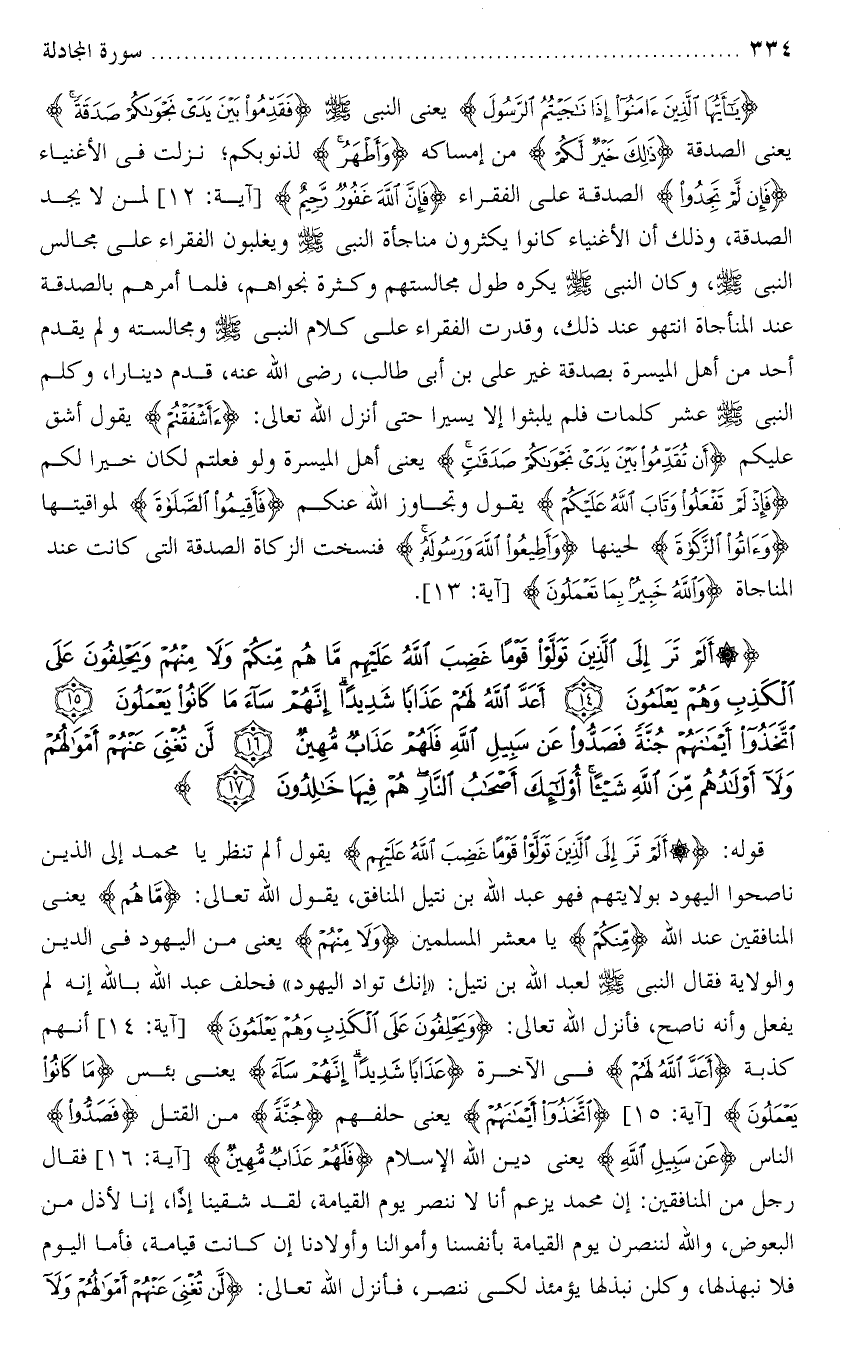 ٣٣٤ ........................................................................ سورة المجادلة
﴿يَٰٓأَيُّهَا ٱلَّذِينَ ءَامَنُوٓا۟ إِذَا نَٰجَيْتُمُ ٱلرَّسُولَ﴾ يعنى النبى ﷺ ﴿فَقَدِّمُوا۟ بَيْنَ يَدَىْ نَجْوَىٰكُمْ صَدَقَةً ۚ﴾
يعنى الصدقة ﴿ذَٰلِكَ خَيْرٌ لَّكُمْ﴾ من إمساكه ﴿وَأَطْهَرُ ۚ﴾ لذنوبكم؛ نزلت فى الأغنياء
﴿فَإِن لَّمْ تَجِدُوا۟﴾ الصدقة على الفقراء ﴿فَإِنَّ ٱللَّهَ غَفُورٌ رَّحِيمٌ﴾ [آية: ١٢] لمن لا يجد
الصدقة، وذلك أن الأغنياء كانوا يكثرون مناجأة النبى ﷺ ويغلبون الفقراء على مجالس
النبى ﷺ، وكان النبى ﷺ يكره طول مجالستهم وكثرة نجواهم، فلما أمرهم بالصدقة
عند المنأجاة انتهو عند ذلك، وقدرت الفقراء على كلام النبى ﷺ ومجالسته ولم يقدم
أحد من أهل الميسرة بصدقة غير على بن أبى طالب، رضى الله عنه، قدم دينارا، وكلم
النبى ﷺ عشر كلمات فلم يلبثوا إلا يسيرا حتى أنزل الله تعالى: ﴿ءَأَشْفَقْتُمْ﴾ يقول أشق
عليكم ﴿أَن تُقَدِّمُوا۟ بَيْنَ يَدَىْ نَجْوَىٰكُمْ صَدَقَٰتٍ ۚ﴾ يعنى أهل الميسرة ولو فعلتم لكان خيرا لكم
﴿فَإِذْ لَمْ تَفْعَلُوا۟ وَتَابَ ٱللَّهُ عَلَيْكُمْ﴾ يقول وتجاوز الله عنكم ﴿فَأَقِيمُوا۟ ٱلصَّلَوٰةَ﴾ لمواقيتها
﴿وَءَاتُوا۟ ٱلزَّكَوٰةَ﴾ لحينها ﴿وَأَطِيعُوا۟ ٱللَّهَ وَرَسُولَهُۥ ۚ﴾ فنسخت الزكاة الصدقة التى كانت عند
المناجاة ﴿وَٱللَّهُ خَبِيرٌۢ بِمَا تَعْمَلُونَ﴾ [آية: ١٣].
﴿۞ أَلَمْ تَرَ إِلَى ٱلَّذِينَ تَوَلَّوْا۟ قَوْمًا غَضِبَ ٱللَّهُ عَلَيْهِم مَّا هُم مِّنكُمْ وَلَا مِنْهُمْ وَيَحْلِفُونَ عَلَى
ٱلْكَذِبِ وَهُمْ يَعْلَمُونَ ١٤ أَعَدَّ ٱللَّهُ لَهُمْ عَذَابًا شَدِيدًا ۖ إِنَّهُمْ سَآءَ مَا كَانُوا۟ يَعْمَلُونَ ١٥
ٱتَّخَذُوٓا۟ أَيْمَٰنَهُمْ جُنَّةً فَصَدُّوا۟ عَن سَبِيلِ ٱللَّهِ فَلَهُمْ عَذَابٌ مُّهِينٌ ١٦ لَّن تُغْنِىَ عَنْهُمْ أَمْوَٰلُهُمْ
وَلَآ أَوْلَٰدُهُم مِّنَ ٱللَّهِ شَيْـًٔا ۚ أُو۟لَٰٓئِكَ أَصْحَٰبُ ٱلنَّارِ ۖ هُمْ فِيهَا خَٰلِدُونَ ١٧ ﴾
قوله: ﴿۞ أَلَمْ تَرَ إِلَى ٱلَّذِينَ تَوَلَّوْا۟ قَوْمًا غَضِبَ ٱللَّهُ عَلَيْهِم﴾ يقول ألم تنظر يا محمد إلى الذين
ناصحوا اليهود بولايتهم فهو عبد الله بن نتيل المنافق، يقول الله تعالى: ﴿مَّا هُم﴾ يعنى
المنافقين عند الله ﴿مِّنكُمْ﴾ يا معشر المسلمين ﴿وَلَا مِنْهُمْ﴾ يعنى من اليهود فى الدين
والولاية فقال النبى ﷺ لعبد الله بن نتيل: «إنك تواد اليهود» فحلف عبد الله بالله إنه لم
يفعل وأنه ناصح، فأنزل الله تعالى: ﴿وَيَحْلِفُونَ عَلَى ٱلْكَذِبِ وَهُمْ يَعْلَمُونَ﴾ [آية: ١٤] أنهم
كذبة ﴿أَعَدَّ ٱللَّهُ لَهُمْ﴾ فى الآخرة ﴿عَذَابًا شَدِيدًا ۖ إِنَّهُمْ سَآءَ﴾ يعنى بئس ﴿مَا كَانُوا۟
يَعْمَلُونَ﴾ [آية: ١٥] ﴿ٱتَّخَذُوٓا۟ أَيْمَٰنَهُمْ﴾ يعنى حلفهم ﴿جُنَّةً﴾ من القتل ﴿فَصَدُّوا۟﴾
الناس ﴿عَن سَبِيلِ ٱللَّهِ﴾ يعنى دين الله الإسلام ﴿فَلَهُمْ عَذَابٌ مُّهِينٌ﴾ [آية: ١٦] فقال
رجل من المنافقين: إن محمد يزعم أنا لا ننصر يوم القيامة، لقد شقينا إذًا، إنا لأذل من
البعوض، والله لننصرن يوم القيامة بأنفسنا وأموالنا وأولادنا إن كانت قيامة، فأما اليوم
فلا نبهذلها، وكلن نبذلها يؤمئذ لكى ننصر، فأنزل الله تعالى: ﴿لَّن تُغْنِىَ عَنْهُمْ أَمْوَٰلُهُمْ وَلَآ